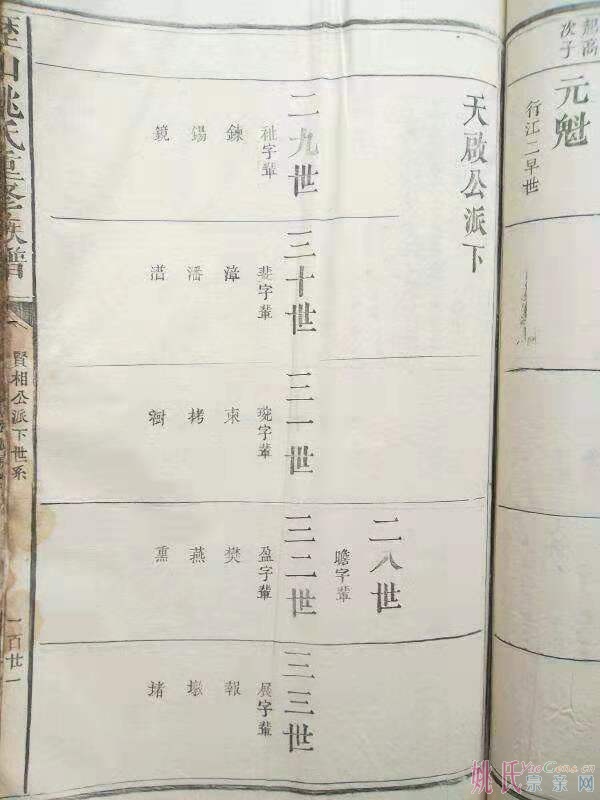 起高
次子
元魁
行江二早世
天啟公派下
二八世
瞻字輩
二九世
祉字輩
鍊
錫
鏡
三十世
斐字輩
漳
潘
三一世
琬字輩
東
栲
樹
三二世
盈字輩
樊
燕
熏
三三世
展字輩
報
墩
堵
山姚氏重修族譜
賢相公派下世系
一百廿一
姚氏宗亲网
YaoCens.cn